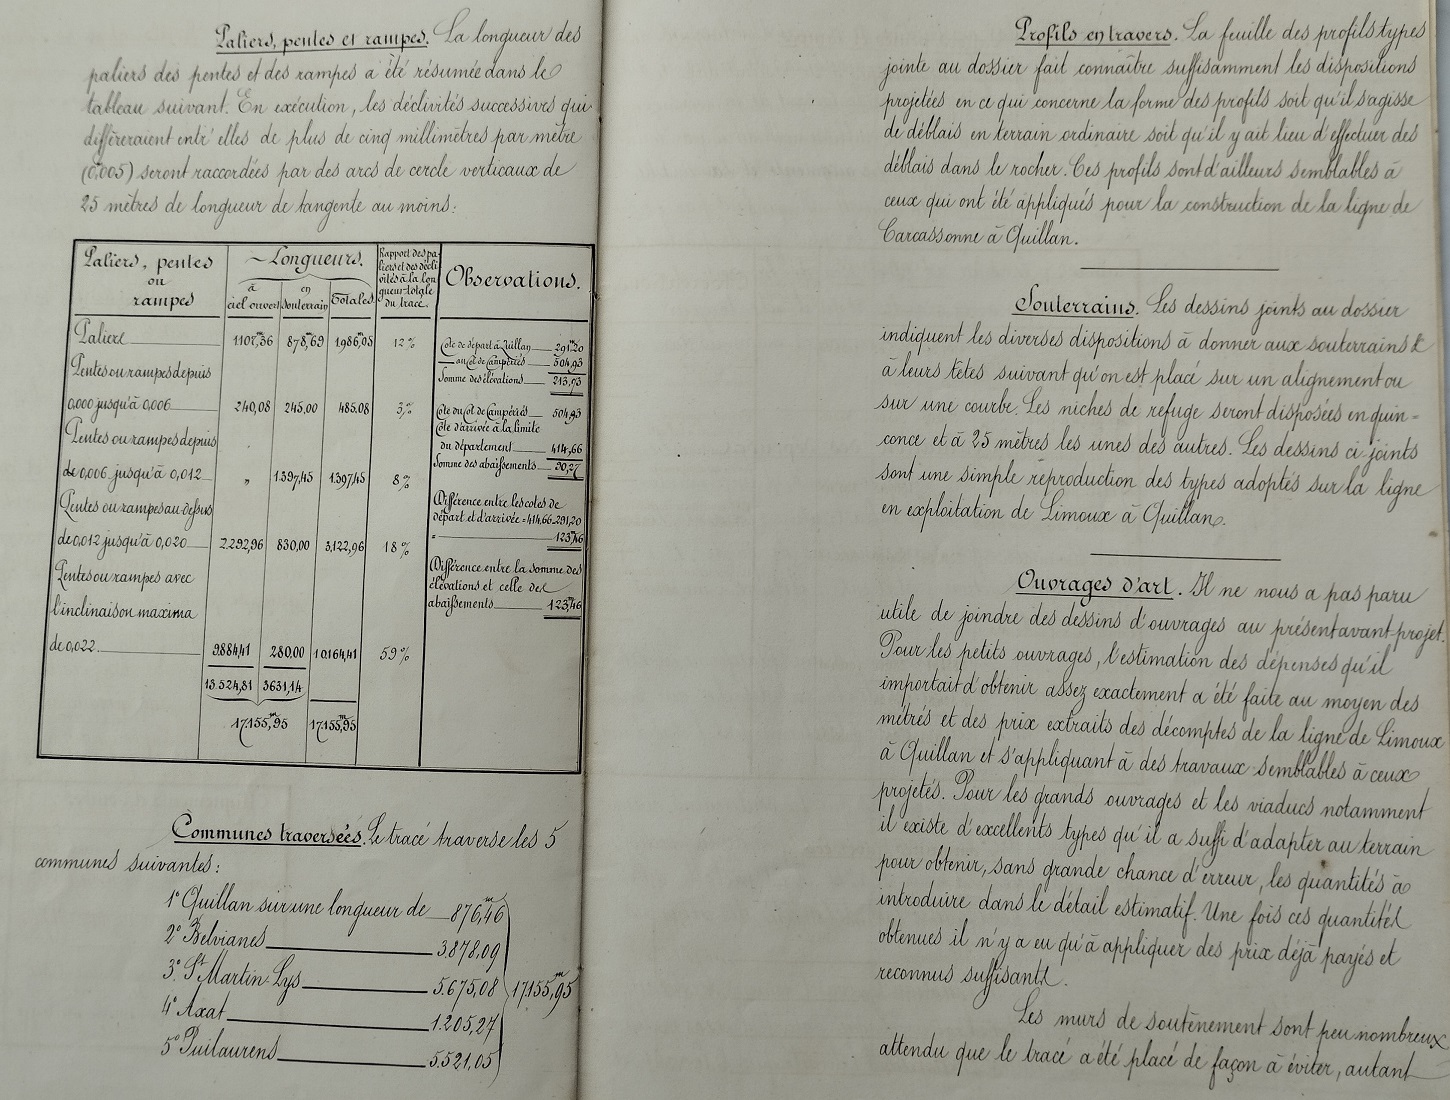 Paliers, pentes et rampes. La longueur des
paliers des pentes et des rampes a été résumée dans le
tableau suivant. En exécution, les déclivités successives qui
différeraient entr'elles de plus de cinq millimètres par mètre
(0,005) seront raccordées par des arcs de cercle verticaux de
25 mètres de longueur de tangente au moins:
Paliers, pentes
ou
rampes
Longueurs.
à
ciel ouvert
en
souterrain
Totales
Rapport des pa-
liers et des décli
vités à la lon
gueur totale
du tracé.
Observations.
Paliers 1107,36 878,69 1986,05 12%
Pentes ou rampes depuis
0,000 jusqu'à 0,006 240,08 245,00 485,08 3%
Pentes ou rampes depuis
de 0,006 jusqu'à 0,012 " 1397,45 1.397,45 8%
Pentes ou rampes au-dessus
de 0,012 jusqu'à 0,020 2.292,96 830,00 3,122,96 18%
Pentes ou rampes avec
l'inclinaison maxima
de 0,022 9.884,41 280,00 10.164,41 59%
13.524,81 3631,14
17.155,95 17.155,95
Cote de départ à Quillan 291,20
au Col de Campérié 504,93
Somme des élévations 213,73
Cote du Col de Campérié 504,93
Cote d'arrivée à la limite
du département 414,66
Somme des abaissements 90,27
Différence entre les cotes de
départ et d'arrivée = 414,66-291,20
= 123,46
Différence entre la somme des
élévations et celle des
abaissements 123,46
Communes traversées. Le tracé traverse les 5
communes suivantes:
1° Quillan sur une longueur de 876,46
2° Belvianes 3.878,09
3° St Martin Lys 5.675,08 17.155,95
4° Axat 1.205,27
5° Puilaurens 5.521,05
Profils en travers. La feuille des profils types
jointe au dossier fait connaître suffisamment les dispositions
projetées en ce qui concerne la forme des profils soit qu'il s'agisse
de déblais en terrain ordinaire soit qu'il y ait lieu d'effectuer des
déblais dans le rocher. Ces profils sont d'ailleurs semblables à
ceux qui ont été appliqués pour la construction de la ligne de
Carcassonne à Quillan.
Souterrains. Les dessins joints au dossier
indiquent les diverses dispositions à donner aux souterrains &
à leurs têtes suivant qu'on est placé sur un alignement ou
sur une courbe. Les niches de refuge seront disposées en quin=
conce et à 25 mètres les unes des autres. Les dessins ci-joints
sont une simple reproduction des types adoptés sur la ligne
en exploitation de Limoux à Quillan.
Ouvrages d'art. Il ne nous a pas paru
utile de joindre des dessins d'ouvrages au présent avant-projet.
Pour les petits ouvrages, l'estimation des dépenses qu'il
importait d'obtenir assez exactement a été faite au moyen des
métrés et des prix extraits des décomptes de la ligne de Limoux
à Quillan et s'appliquant à des travaux semblables à ceux
projetés. Pour les grands ouvrages et les viaducs notamment
il existe d'excellents types qu'il a suffi d'adapter au terrain
pour obtenir, sans grande chance d'erreur, les quantités à
introduire dans le détail estimatif. Une fois ces quantités
obtenues il n'y a eu qu'à appliquer des prix déjà payés et
reconnus suffisants.
Les murs de soutènement sont peu nombreux
attendu que le tracé a été placé de façon à éviter, autant